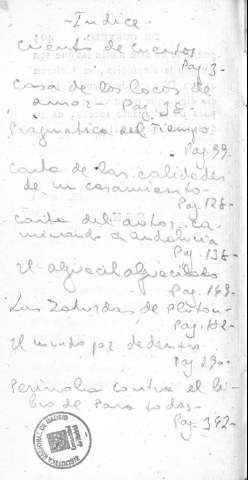 -Indice-
Cuento de Cuentos
Pag. 3-
Casa de los locos de
amor- Pag. 98-
Pragmatica del Tiempo
Pag. 99-
Carta de las calidades
de un casamiento-
Pag. 128-
Carta del autor, ca-
minando a andalucia
Pag. 136-
El alguacil alguacilado
Pag. 149-
Las Zaturdas de Pluton-
Pag.
El mundo por de dentro-
Pag 290-
Perinola contra el li-
bro de Para todos-
Pag- 342-
BIBLIOTECA REGIONAL DE MADRID